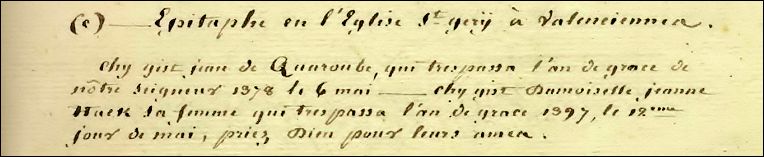 (e) — Epitaphe en l'Eglise St gery à Valenciennes.
Chy gist jean de Quaroube, qui trespassa l'an de grace de
nôtre seigneur 1378 le 6 mai — chy gist Damoiselle jeanne
Hack sa femme qui trespassa l'an de grace 1397, le 12eme
jour de mai, priez Dieu pour leurs ames.